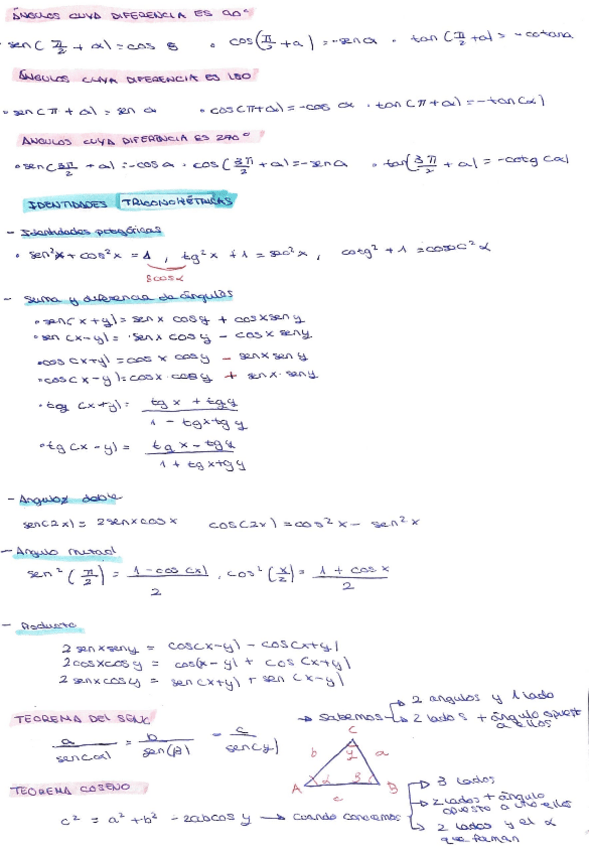 ÁNGULOS CUYA DIFERENCIA ES 90°
· sen(π/2 + α) = cos α · cos(π/2 + α) = -sen α · tan(π/2 + α) = -cotan α
ÁNGULOS CUYA DIFERENCIA ES 180
· sen(π + α) = sen α · cos(π+α) = -cos α · tan(π + α) = -tan(α)
ÁNGULOS CUYA DIFERENCIA ES 270°
· sen(3π/2 + α) = -cos α · cos(3π/2 + α) = -sen α · tan(3π/2 + α) = -cotg(α)
IDENTIDADES TRIGONOMÉTRICAS
- Identidades pitagóricas
· sen²x + cos²x = 1, tg²x + 1 = sec²x, cotg² + 1 = cosec²α
- Suma y diferencia de ángulos
· sen(x+y) = senx cosy + cosx seny
· sen(x-y) = senx cosy - cosx seny
· cos(x+y) = cosx cosy - senx seny
· cos(x-y) = cosx · cosy + senx · seny
· tg(x+y) = tgx + tgy / 1 - tgx tgy
· tg(x-y) = tgx - tgy / 1 + tgx tgy
- Angulos doble
sen(2x) = 2senxcosx cos(2x) = cos²x - sen²x
- Angulo mitad
sen²(π/2) = 1-cos(x) / 2, cos²(x/2) = 1 + cosx / 2
- Producto
2senxseny = cos(x-y) - cos(x+y)
2cosxcosy = cos(x-y) + cos(x+y)
2senxcosy = sen(x+y) + sen(x-y)
TEOREMA DEL SENO
a / sen(α) = b / sen(β) = c / sen(γ)
→ Sabemos
→ 2 angulos y 1 lado
→ 2 lados + ángulo opuesto a ellos
C
γ
b
a
A
α
β
B
c
TEOREMA COSENO
c² = a² + b² - 2abcosγ → cuando conocemos
→ 3 lados
→ 2 lados + ángulo opuesto a uno ellos
→ 2 lados y el α que forman